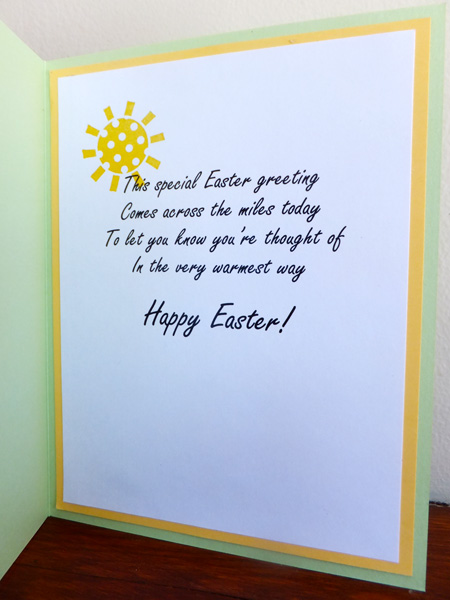 This special Easter greeting
Comes across the miles today
To let you know you're thought of
In the very warmest way
Happy Easter!